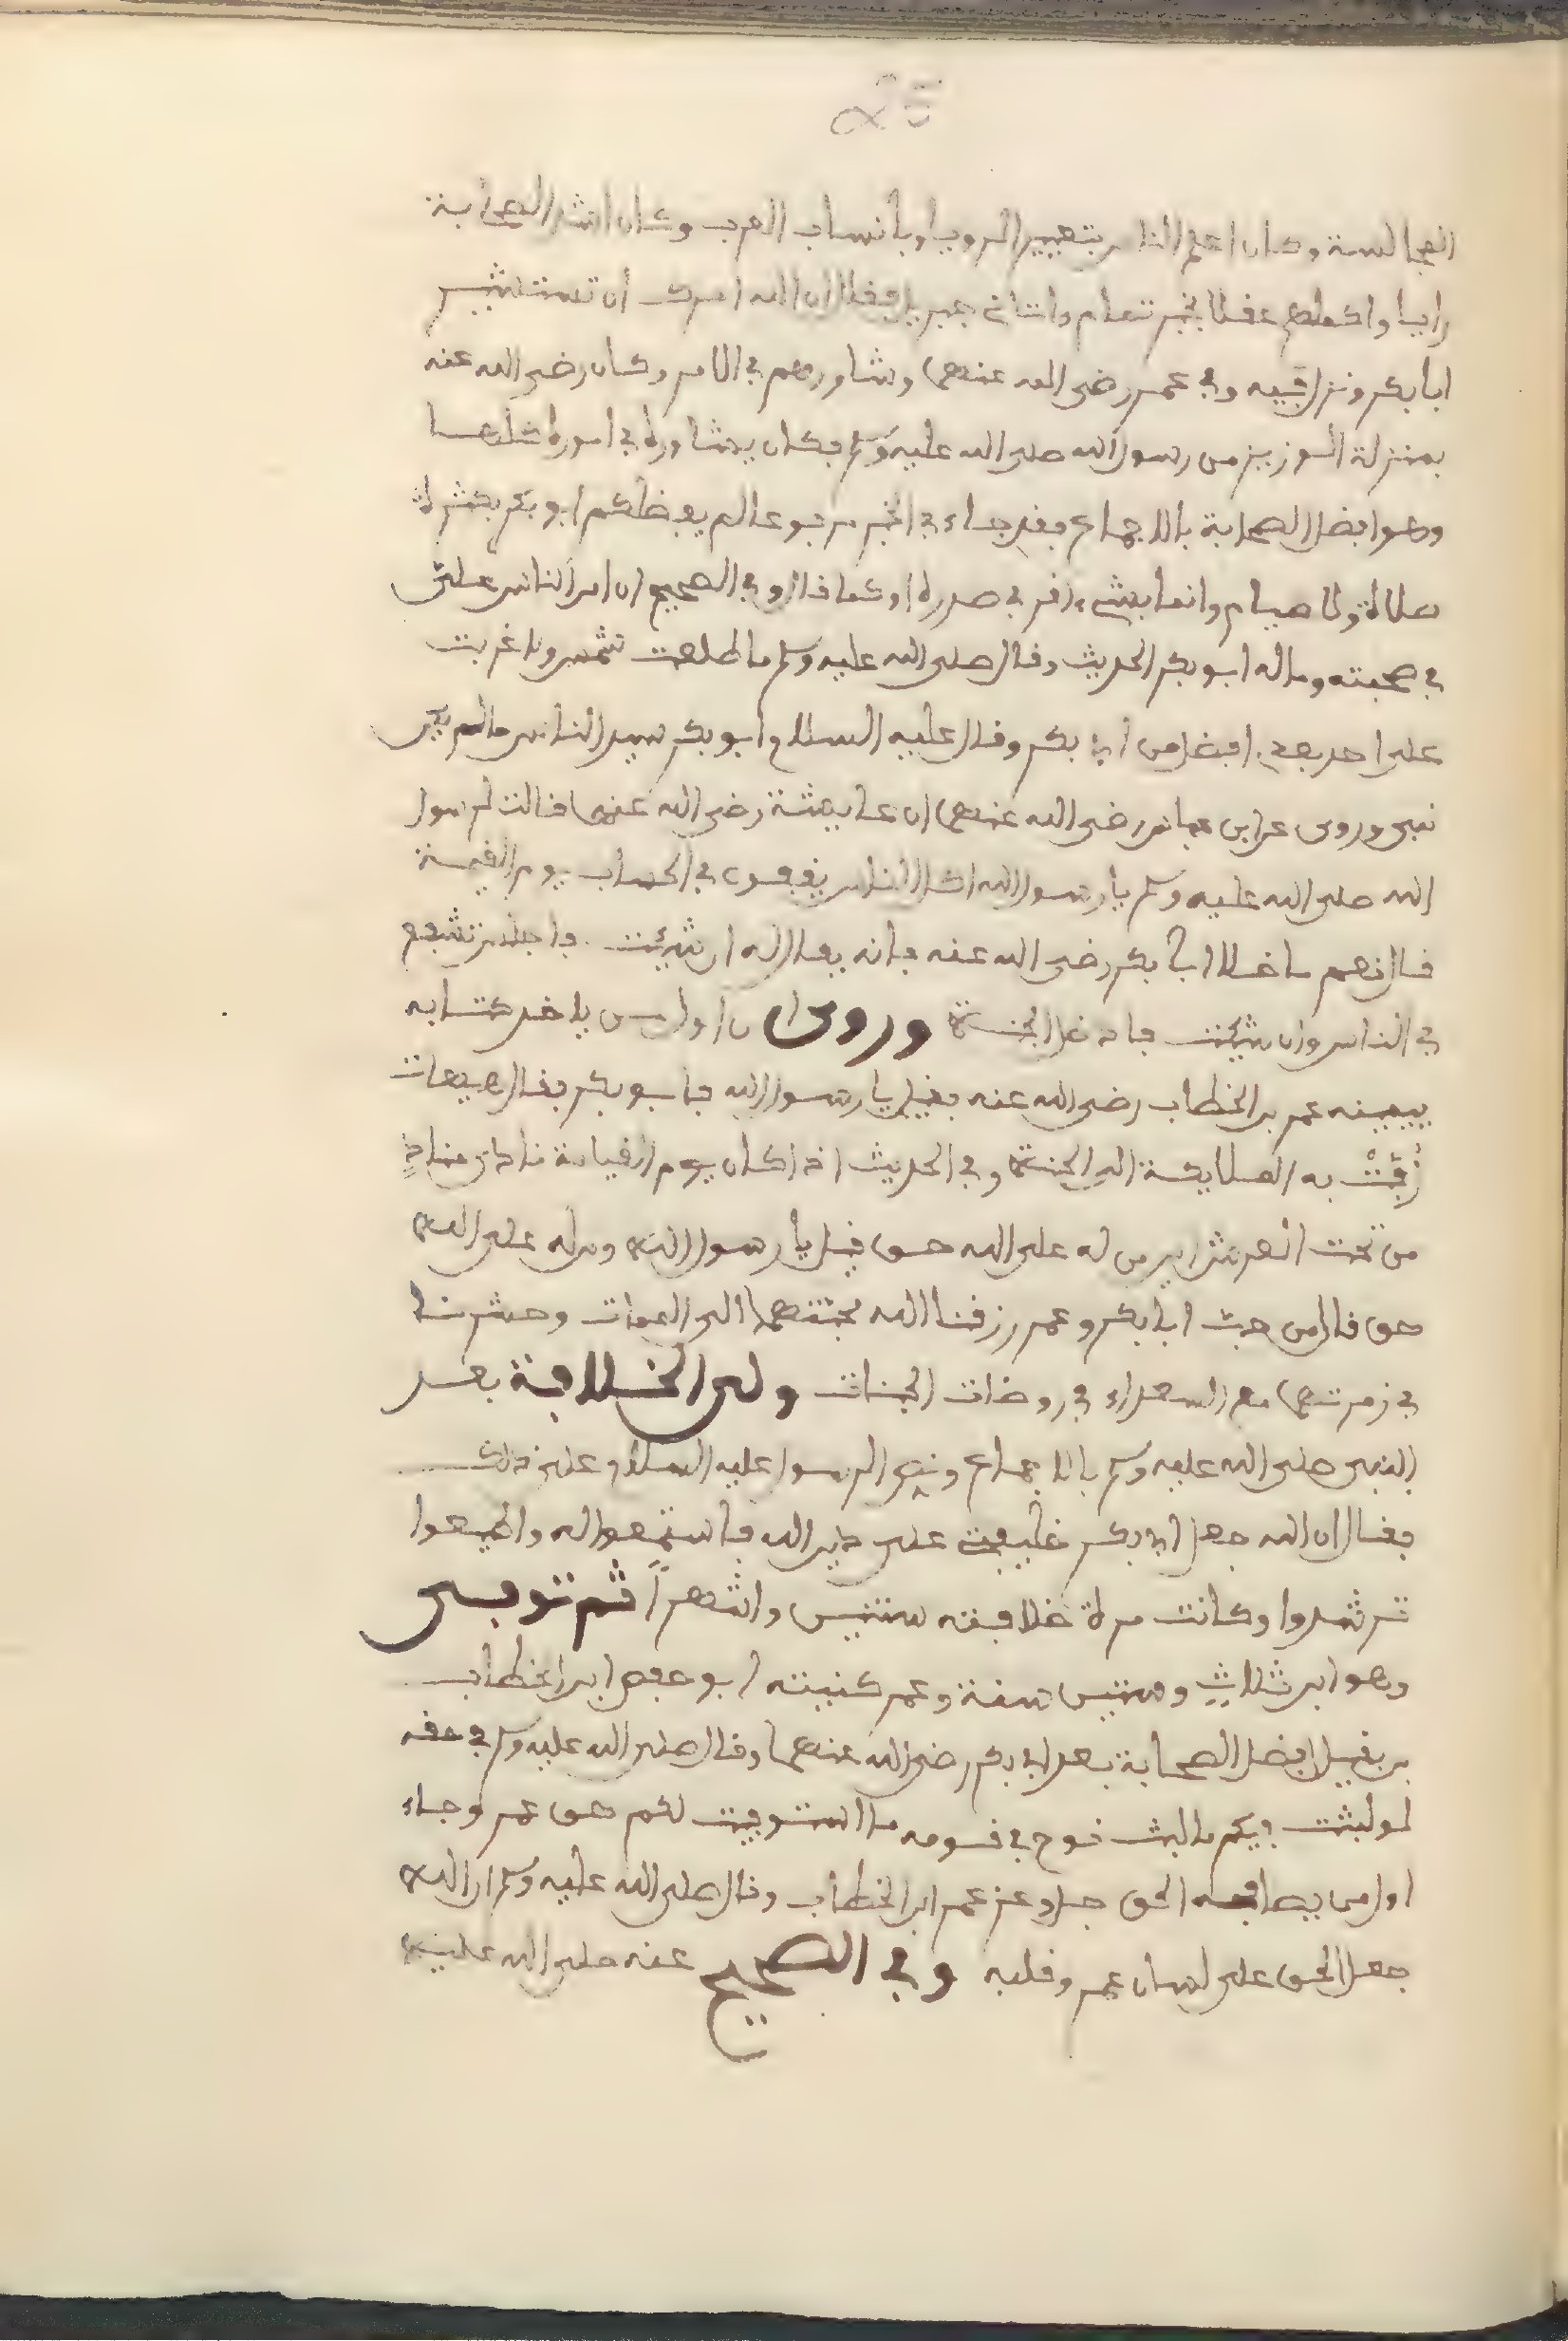 المجالسة وكان اعلم الناس بتعبير الرويا وبأنساب العرب وكان اشد الصحابة
رايا واكملهم عقلا لخبر تمام واتاني جبريل فقال ان الله امرك ان تستشير
ابا بكر ونزل فيه وفي عمر رضى الله عنهما وشاورهم في الامر وكان رضى الله عنه
بمنزلة الوزير من رسول الله صلى الله عليه وسلم فكان يشاوره في اموره كلها
وهو افضل الصحابة بالاجماع فقد جاء في الخبر مرفوعا لم يفضلكم ابو بكر بكثرة
صلاة ولا صيام وانما بشيء وقر في صدره او كما قال وفي الصحيح ان امن الناس على
في صحبته وماله ابو بكر الحديث وقال صلى الله عليه وسلم ما طلعت شمس ولا غربت
على احد بعدي افضل من ابا بكر وقال عليه السلام ابو بكر سيد الناس مالم يكن
نبى وروى عن ابن عباس رضى الله عنهما ان عايشة رضى الله عنها قالت لرسول
الله صلى الله عليه وسلم يا رسول الله اكل الناس يقفون في الحساب يوم القيمة
قال نعم ما خلا ابا بكر رضى الله عنه فانه يقال له ان شئت فاجلس تشفع
في الناس وان شيت فادخل الجنة وروى ان اول من ياخذ كتابه
بيمينه عمر بن الخطاب رضى الله عنه فقيل يا رسول الله فابو بكر فقال هيهات
زُفَّتْ به الملايكة الى الجنة وفي الحديث اذا كان يوم القيامة نادى منادٍ
من تحت العرش اين من له على الله حق قيل يا رسول الله ومن له على الله
حق قال من حب ابا بكر وعمر رزقنا الله محبتهما الى الممات وحشرنا
في زمرتهما مع السعداء في روضات الجنات ولى الخلافة بعد
النبى صلى الله عليه وسلم بالاجماع ونص الرسول عليه السلام على ذلك
فقال ان الله جعل ابا بكر خليفتي على دين الله فاستمعوا له واطيعوا
ترشدوا وكانت مدة خلافته سنتين واشهراً ثم توفى
وهو ابن ثلاثٍ وستين سنة وعمر كنيته ابو حفص ابن الخطاب
بن نفيل افضل الصحابة بعد ابي بكر رضى الله عنهما وقال صلى الله عليه وسلم في حقه
لو لبثت فيكم ما لبث نوح في قومه ما استوفيت لكم حق عمر وجاء
اول من يصافحه الحق جل وعز عمر ابن الخطاب وقال صلى الله عليه وسلم ان الله
جعل الحق على لسان عمر وقلبه وفي الصحيح عنه صلى الله عليه